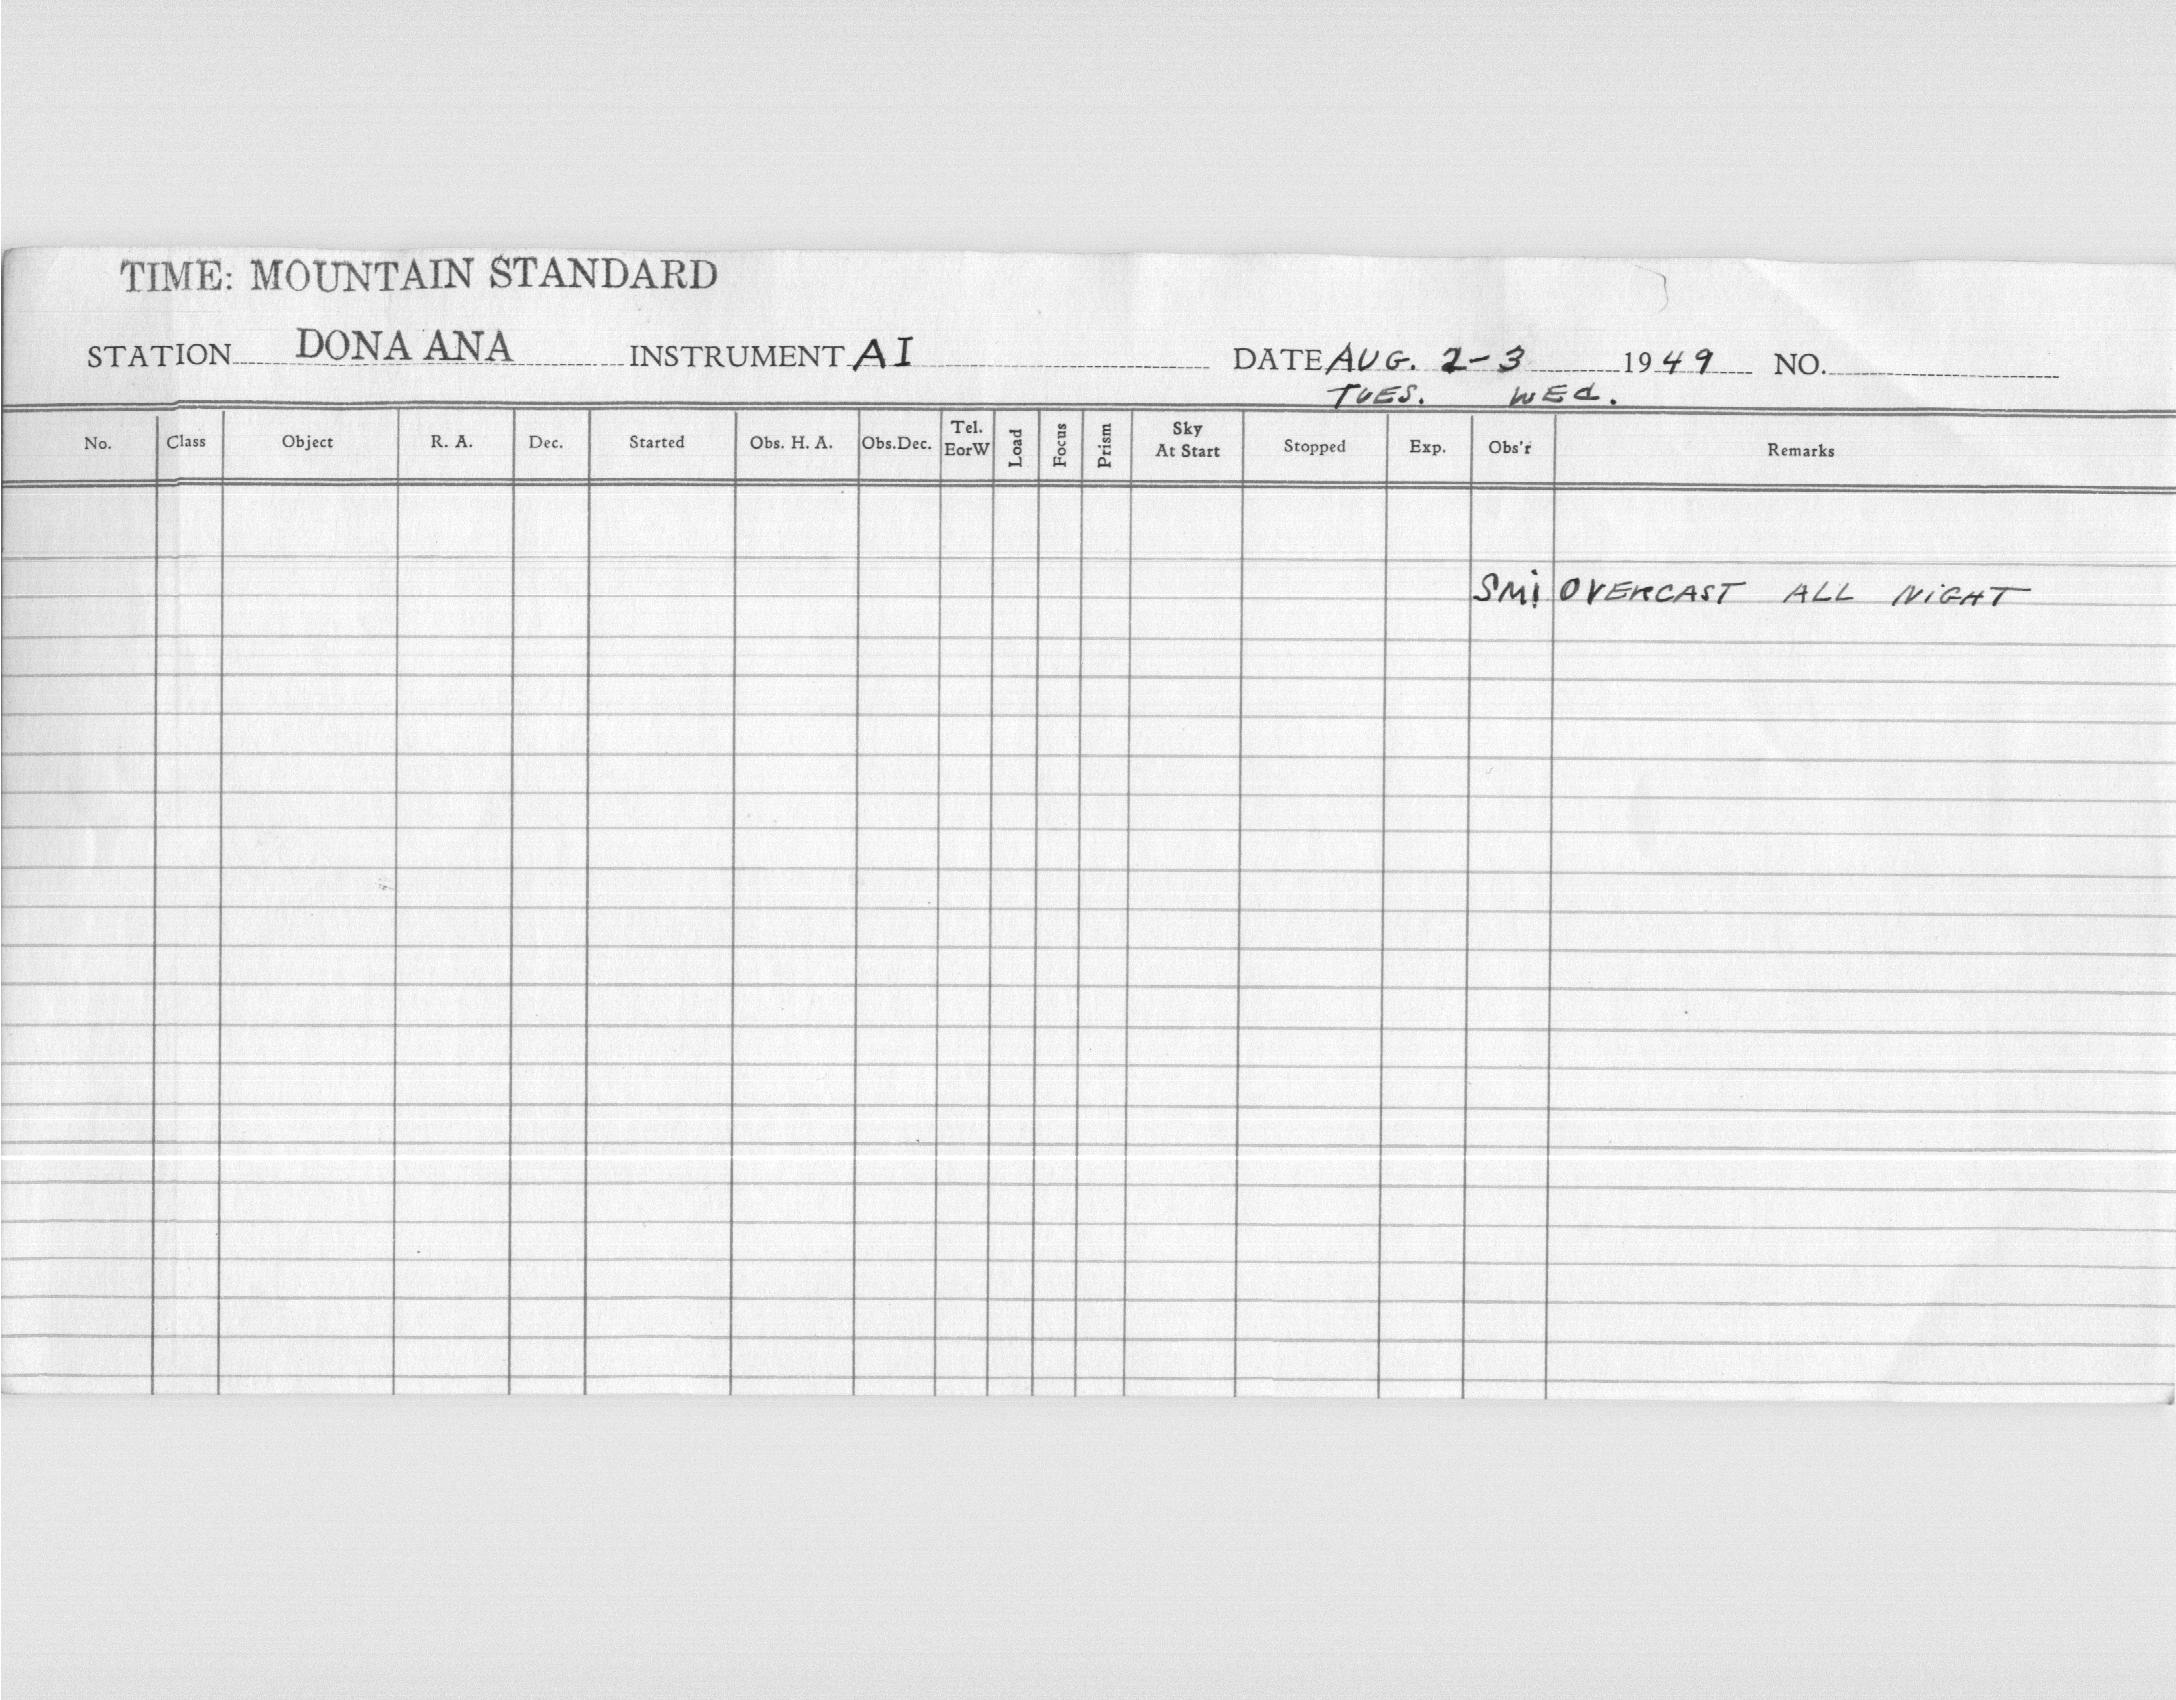 TIME: MOUNTAIN STANDARD
STATION DONA ANA INSTRUMENT AI DATE AUG. 2-3 1949 NO.
TUES. WED.
No. Class Object R. A. Dec. Started Obs. H. A. Obs.Dec. Tel. EorW Load Focus Prism Sky At Start Stopped Exp. Obs'r Remarks
SMi OVERCAST ALL NiGHT